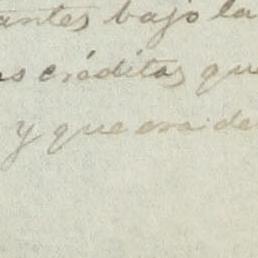 antes bajo la
os créditos qu
y que era de